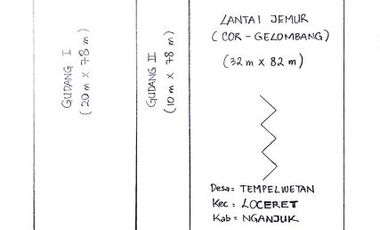 GUDANG I
(20 m X 78 m)
GUDANG II
(10 m X 78 m)
LANTAI JEMUR
(COR - GELOMBANG)
(32 m X 82 m)
Desa = TEMPELWETAN
Kec = LOCERET
Kab = NGANJUK